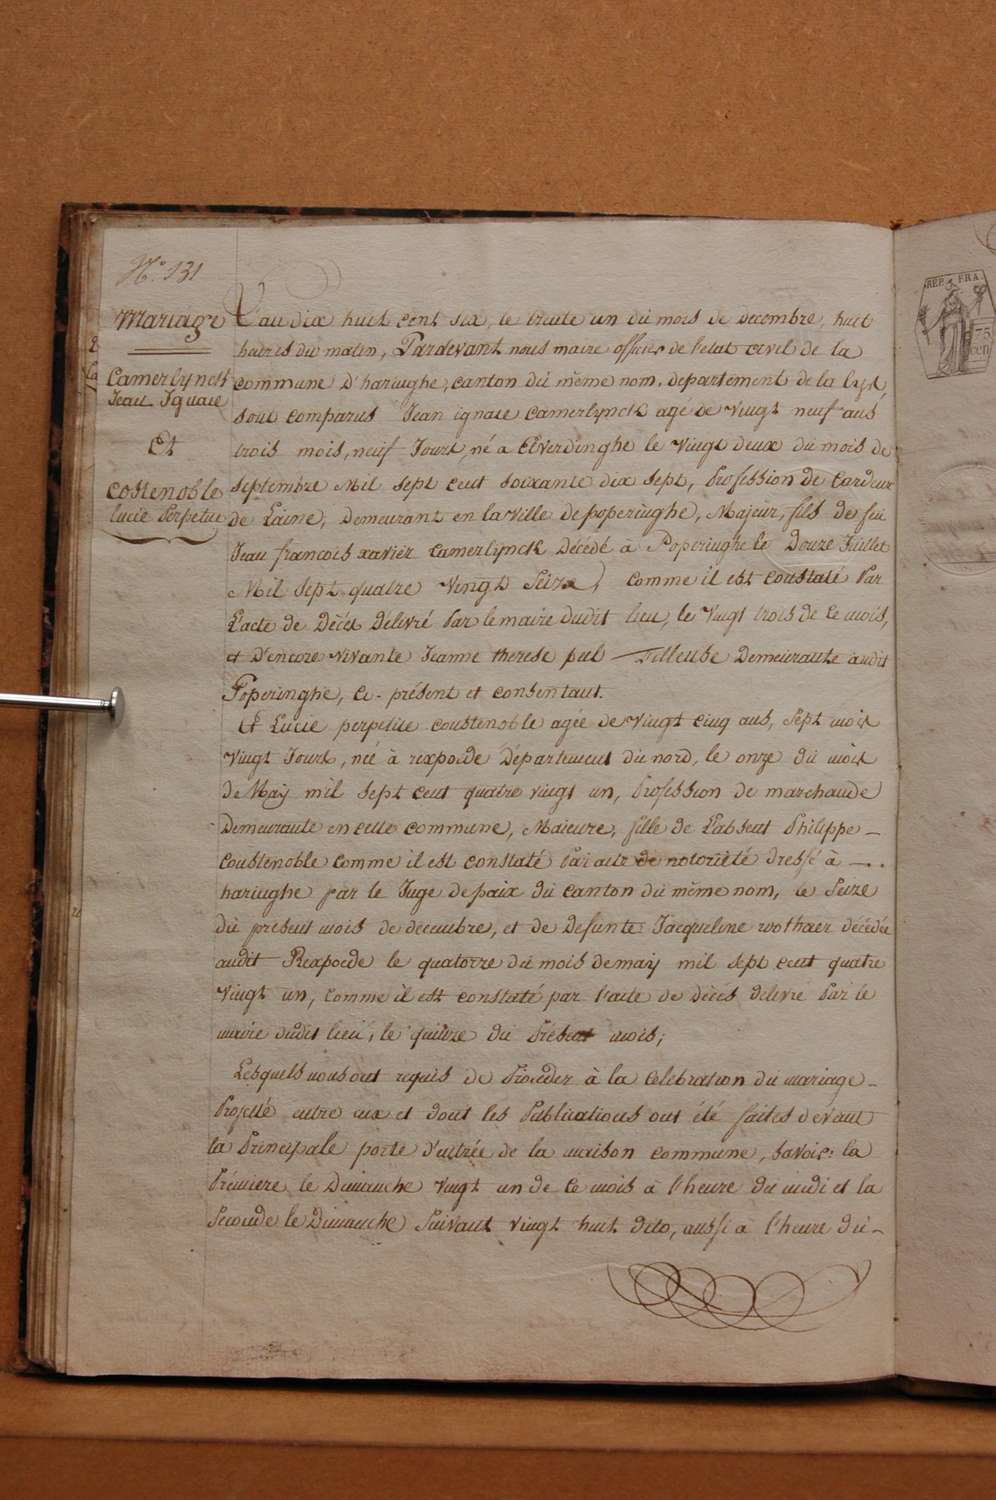 N.° 131
Mariage
Camerlynck
Jean Ignace
Et
costenoble
lucie Perpetue
L'an dix huit cent six, le trente un du mois de decembre, huit
heures du matin, Pardevant nous maire officier de l'etat civil de la
commune d'haringhe, canton du même nom, departement de la Lys,
sont comparus Jean ignace camerlynck agé de Vingt neuf ans
trois mois, neuf Jours, né a Elverdinghe le Vingt deux du mois de
septembre Mil sept cent soixante dix sept, Profession de Cardeur
de Laine, Demeurant en la Ville de poperinghe, Majeur, fils de feu
Jean francois xavier camerlynck Décédé à Poperinghe le Douze Juillet
Mil Sept quatre Vingt Seize, comme il est constaté Par
L'acte de Décés Delivré Par le maire dudit lieu, le Vingt trois de ce mois,
et D'encore Vivante Jeanne therese pul — Filleuse Demeurante audit
Poperinghe, ce - présent et consentant.
Et Lucie perpetue coustenoble agée de Vingt cinq ans, Sept mois
Vingt Jours, née à rexpoede Département du nord, le onze du mois
de May mil sept cent quatre vingt un, Profession de marchande
Demeurante en cette commune, Majeure, fille de L'absent Philippe -
Coustenoble comme il est constaté Par acte de notorieté dressé à -
haringhe par le Juge de paix du canton du même nom, le Seize
du present mois de decembre, et de Defunte Jacqueline wothaer décédée
audit Rexpoede le quatorze du mois de may mil sept cent quatre
Vingt un, comme il est constaté par l'acte de Décés delivré Par le
maire dudit lieu, le quinze du Présent mois;
Lesquels nous ont requis de Procéder à la Celebration du mariage -
Projetté entre eux et dont les Publications ont été faites devant
la Principale porte d'entrée de la maison commune, Savoir: la
Prémiere le Dimanche vingt un de ce mois à l'heure du midi et la
Seconde le Dimanche Suivant vingt huit dito, aussi a l'heure du -
REP. FRA.
75
cen